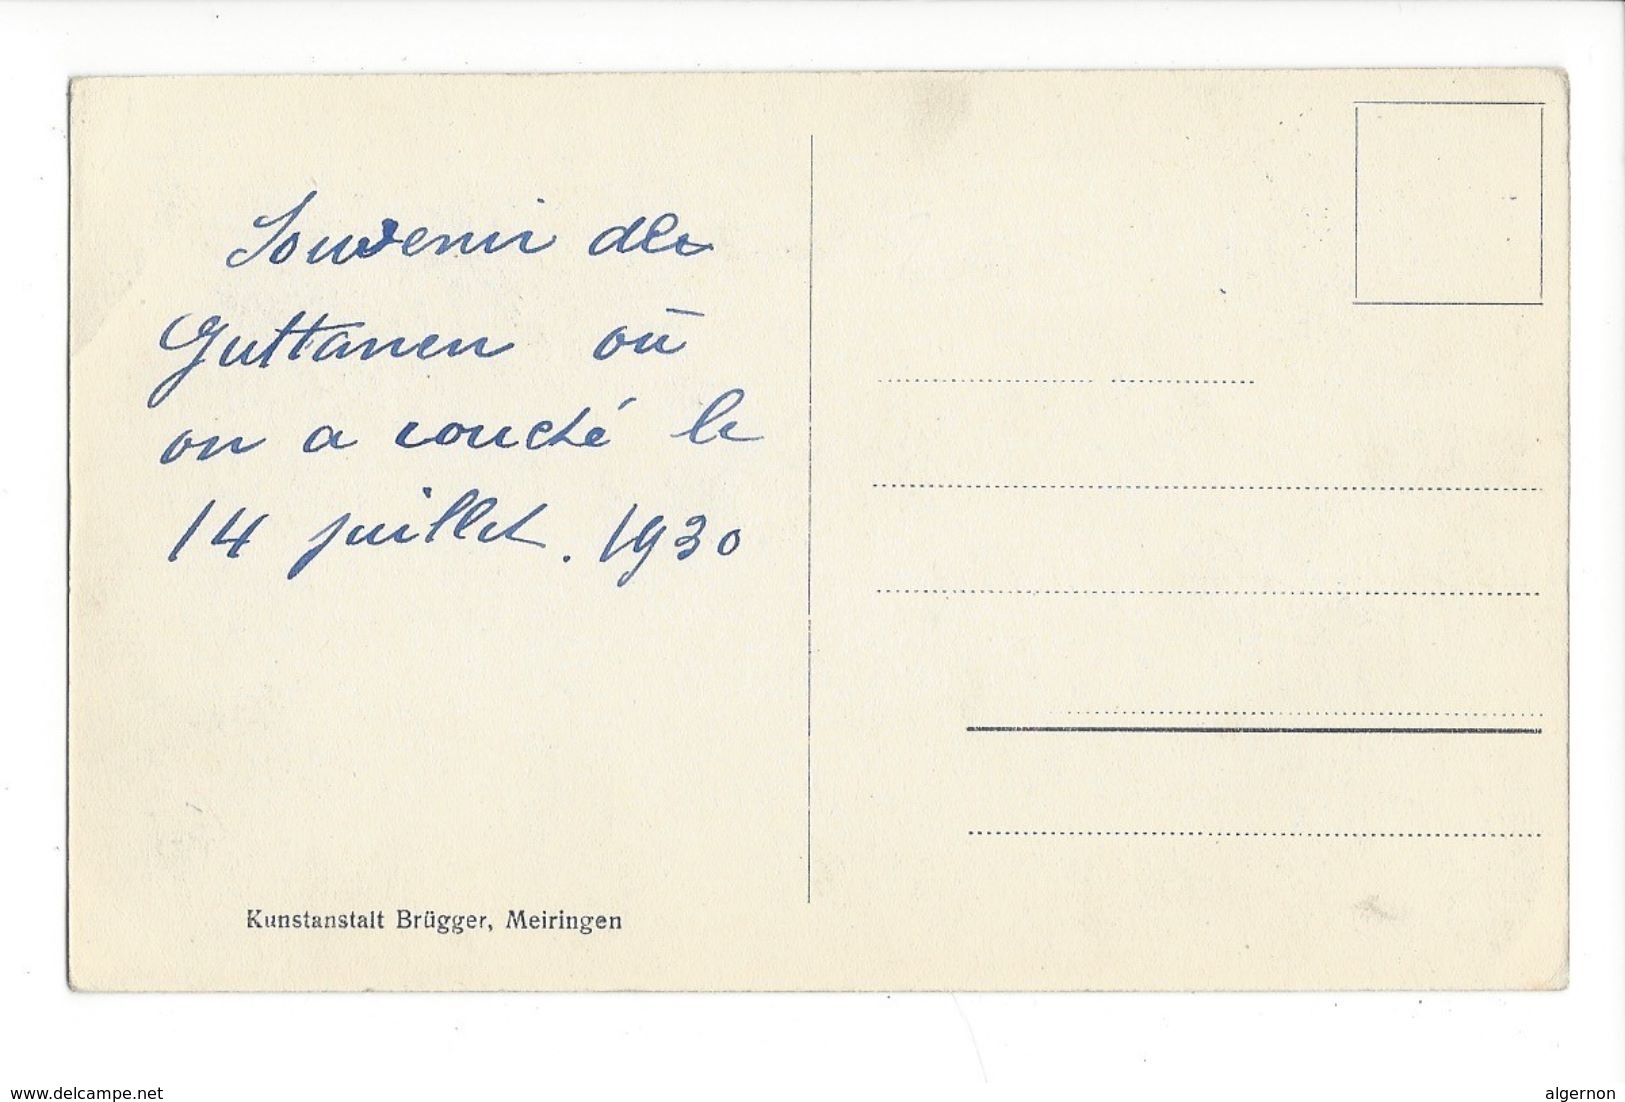 Souvenir de
Guttanen où
on a couché le
14 juillet. 1930
Kunstanstalt Brügger, Meiringen
www.delcampe.net
algernon